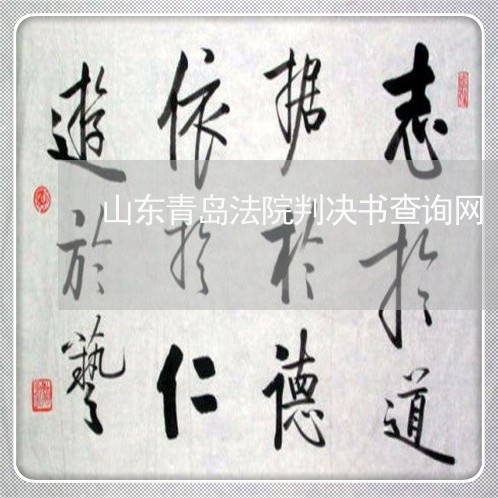 志於道
据於德
依於仁
遊於藝
山东青岛法院判决书查询网